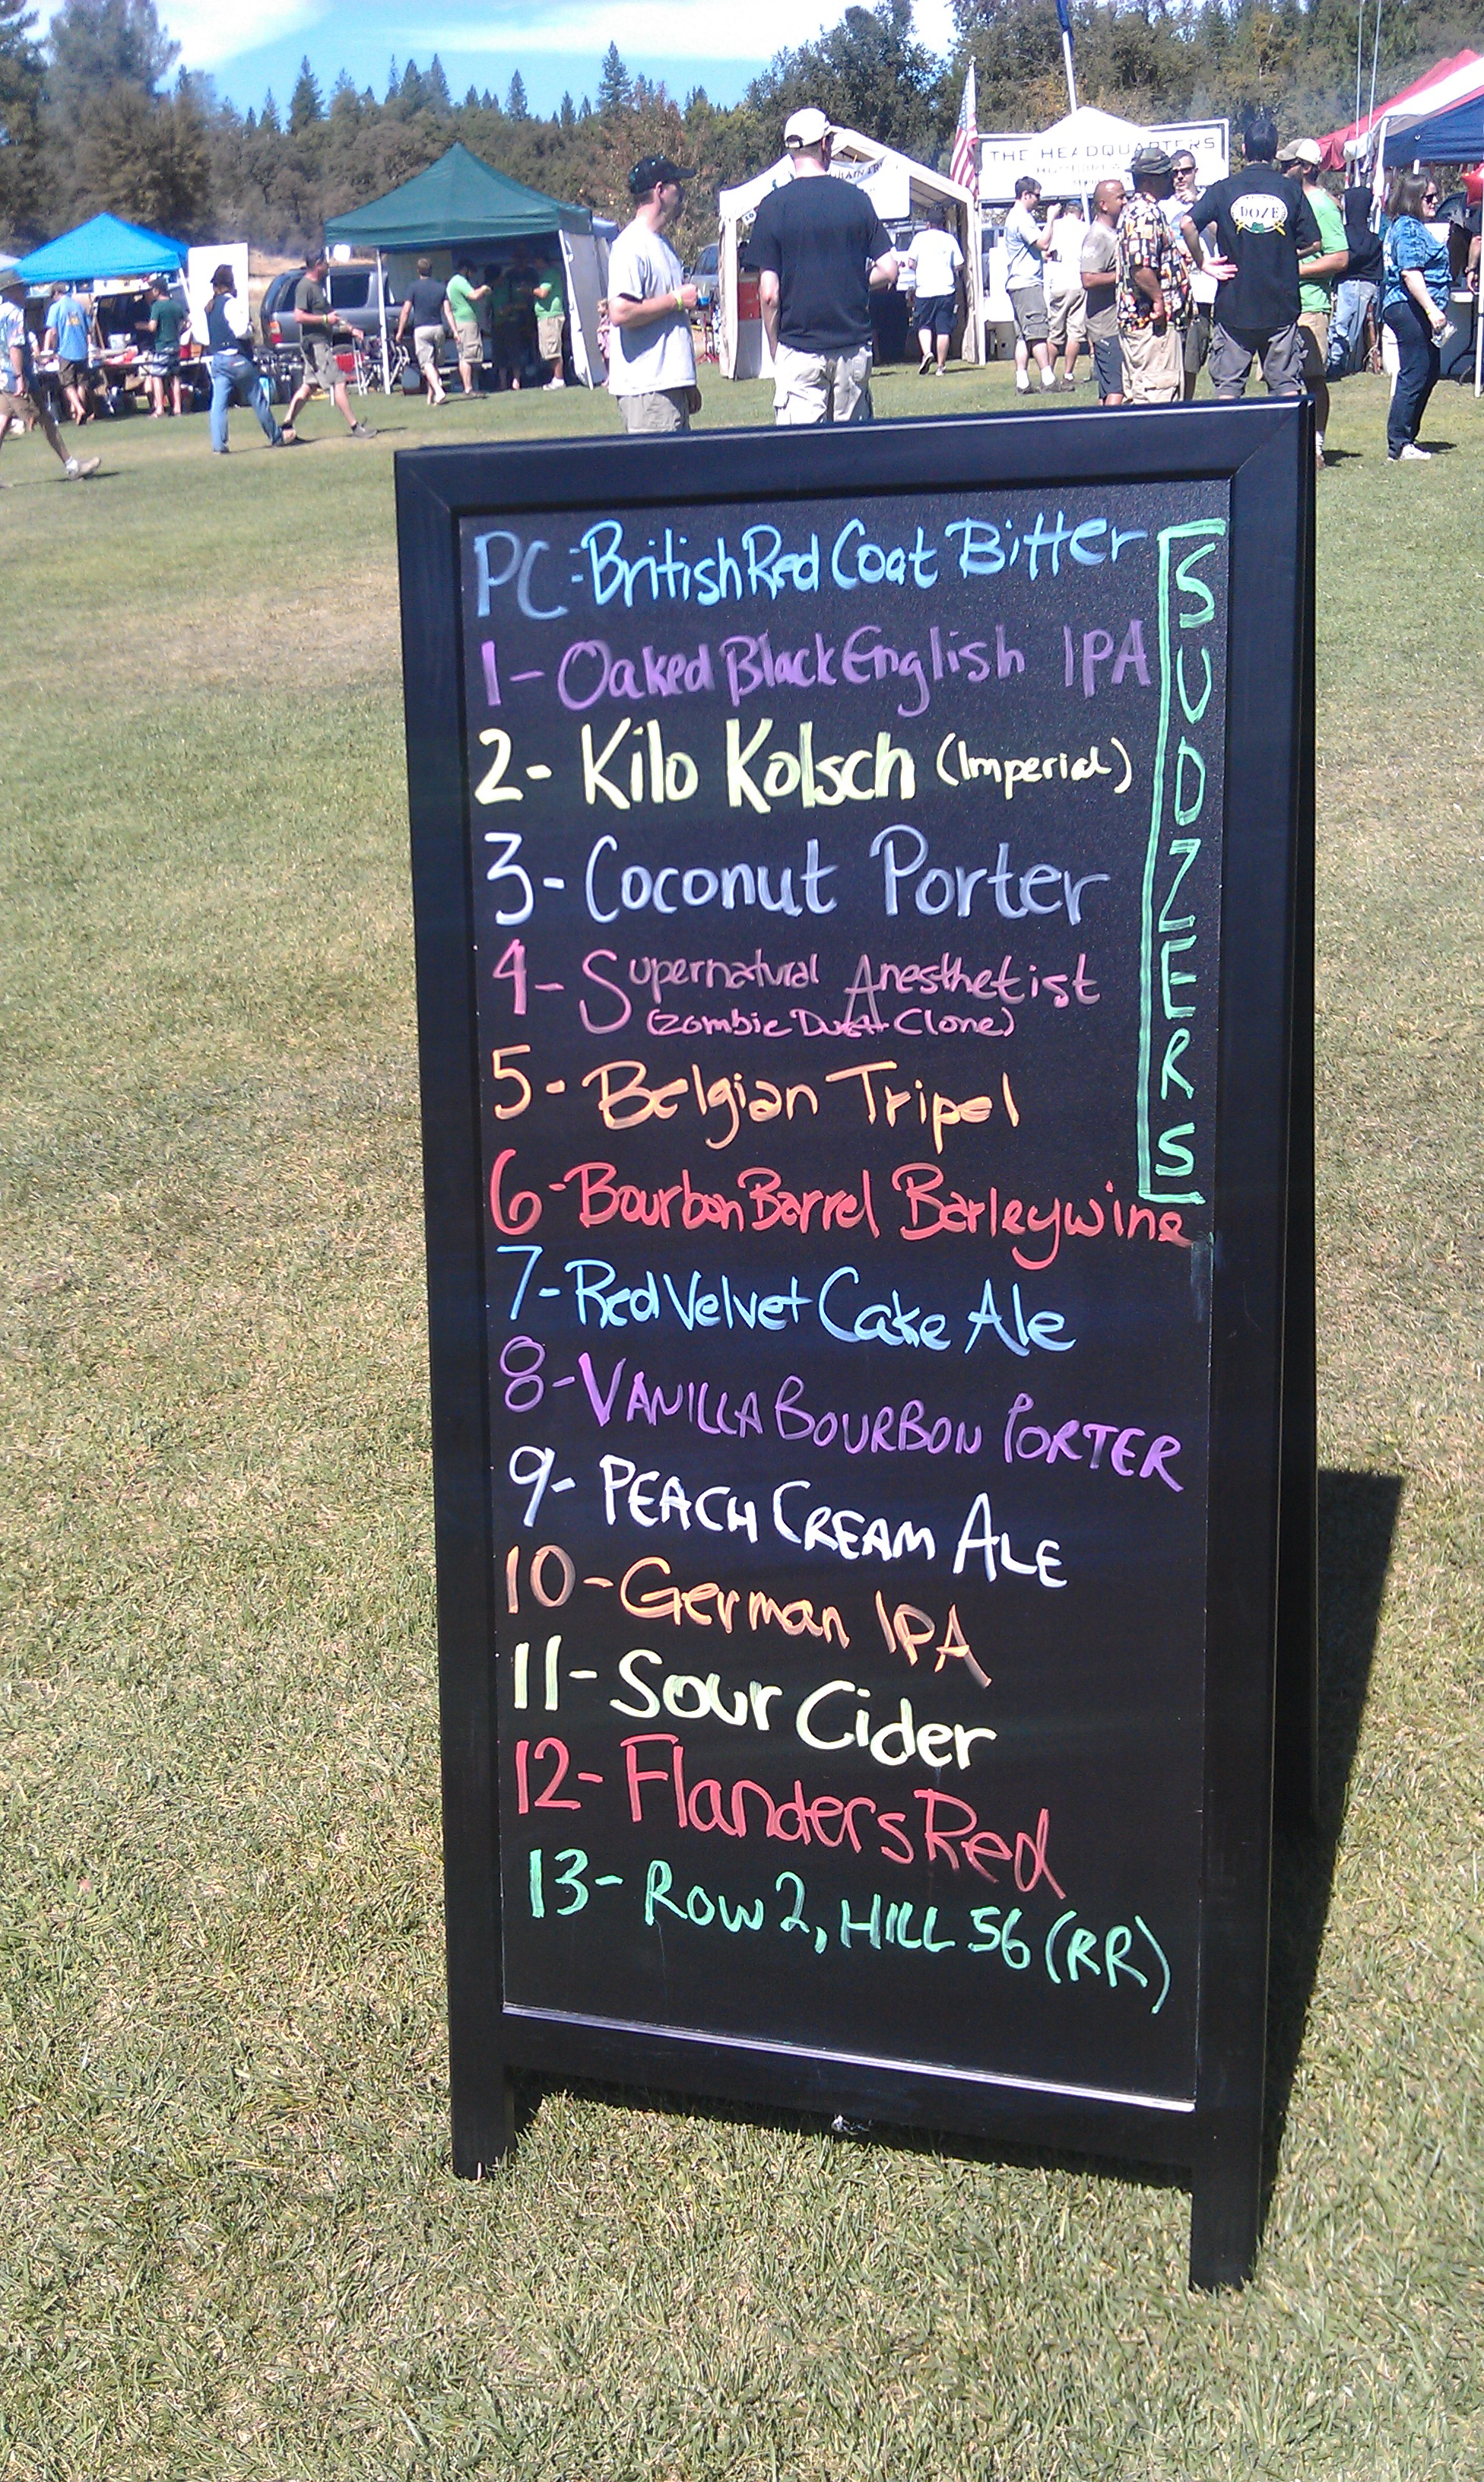 THE HEADQUARTERS
DOZE
PC-British Red Coat Bitter
1-Oaked Black English IPA
2-Kilo Kolsch (Imperial)
3-Coconut Porter
4-Supernatural Anesthetist
(Zombie Dust Clone)
5-Belgian Tripel
6-Bourbon Barrel Barleywine
7-Red Velvet Cake Ale
8-VANILLA BOURBON PORTER
9-PEACH CREAM ALE
10-German IPA
11-Sour Cider
12-Flanders Red
13-ROW 2, HILL 56 (RR)
SUDZERS